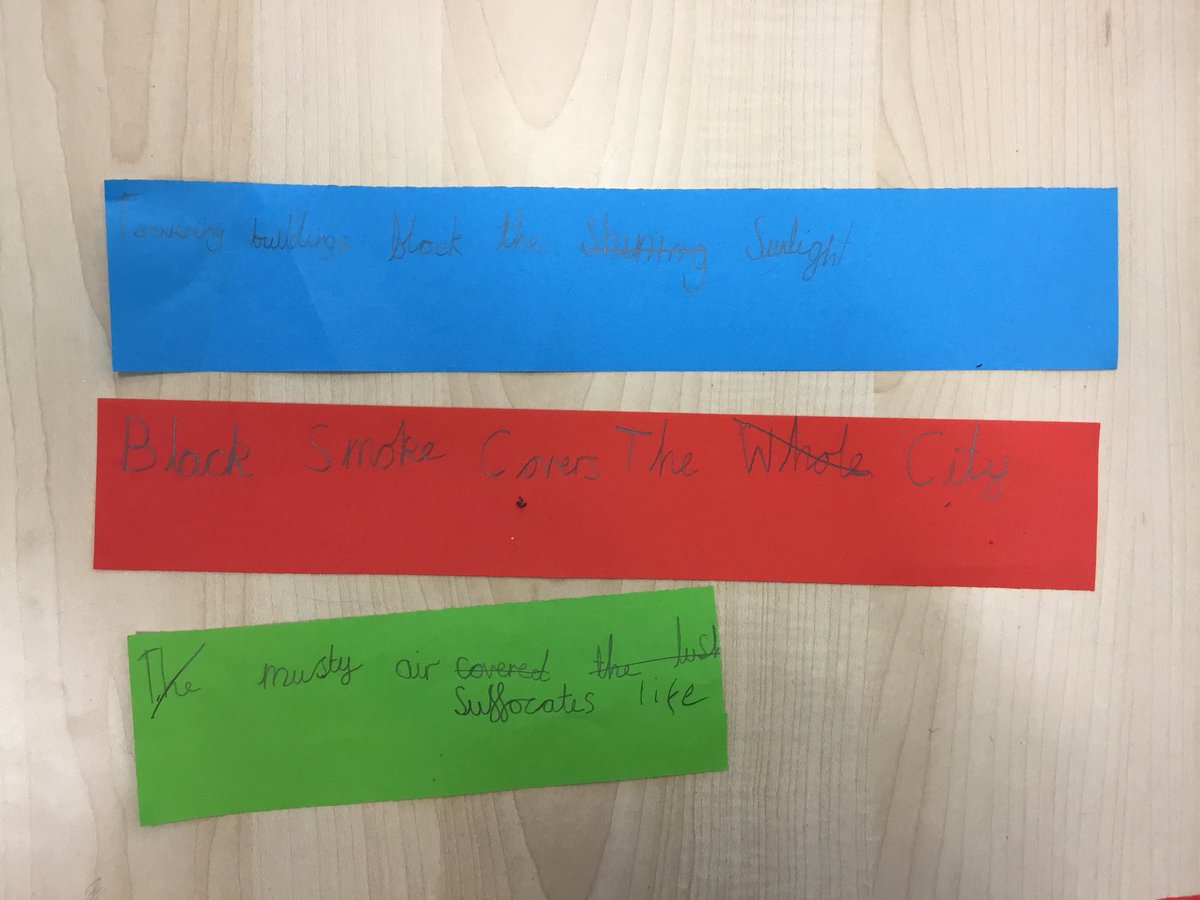 Towering buildings block the shining Sunlight
Black Smoke Covers The Whole City
The musty air covered the lush
Suffocates life